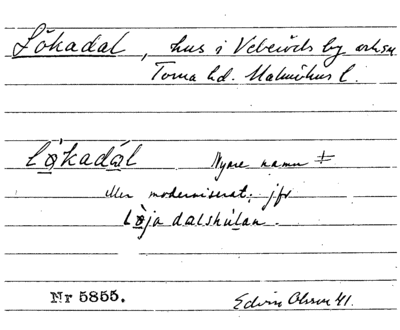 Lökadal, hus i Veberöds by o. sn
Torna hd. Malmöhus l.
lø̀kadál Nyare namn ≠
eller moderniserat; jfr
Lø̀jadalshúlan.
Nr 5855.
Edvin Olsson 41.